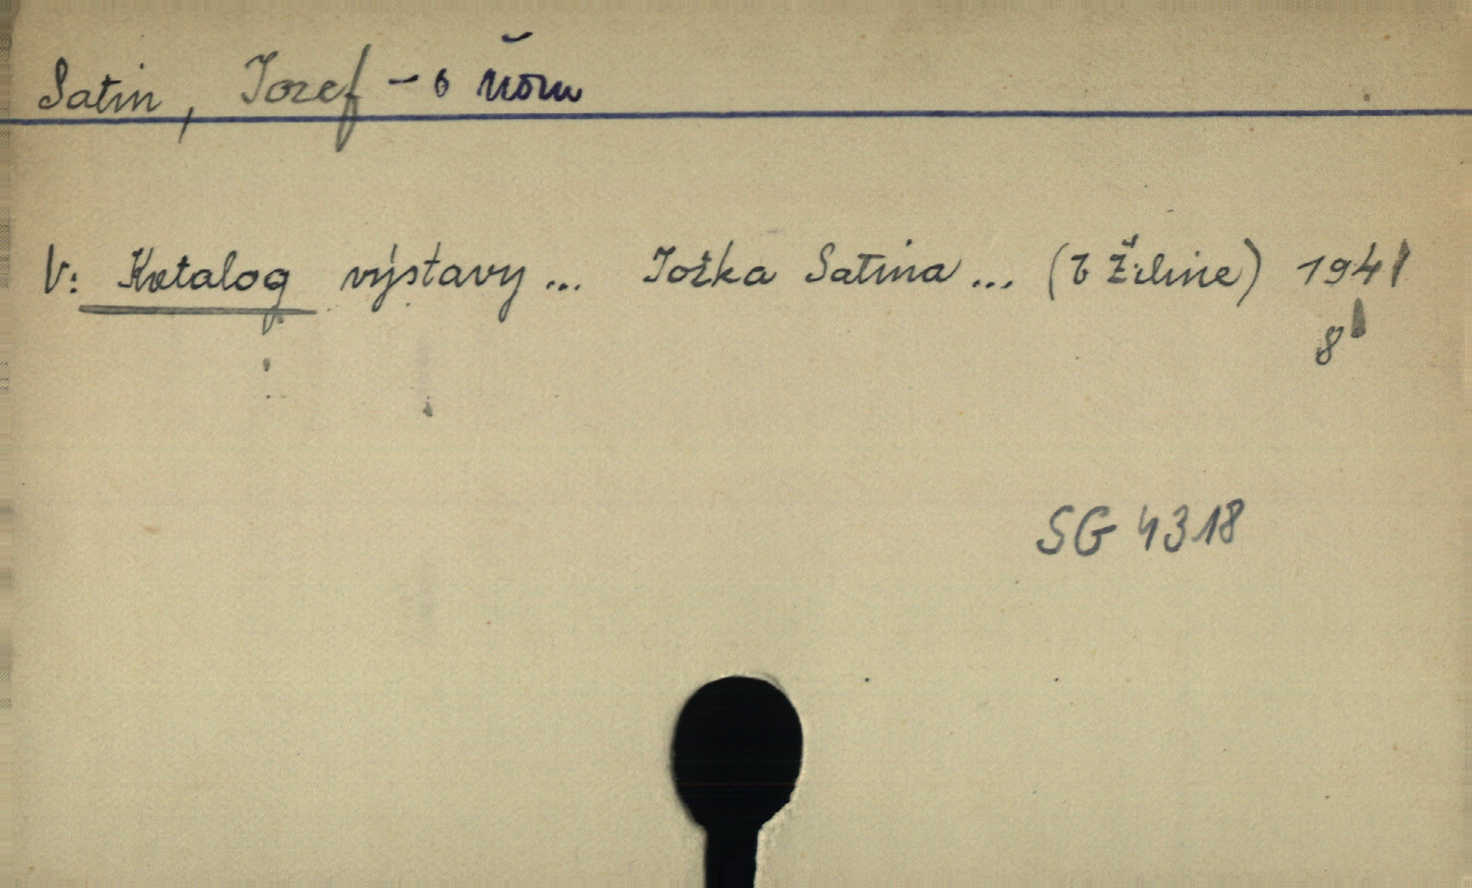 Satin, Jozef - o ňom
V: Katalog výstavy ... Jožka Satina ... (v Žiline) 1941
8
SG 4318